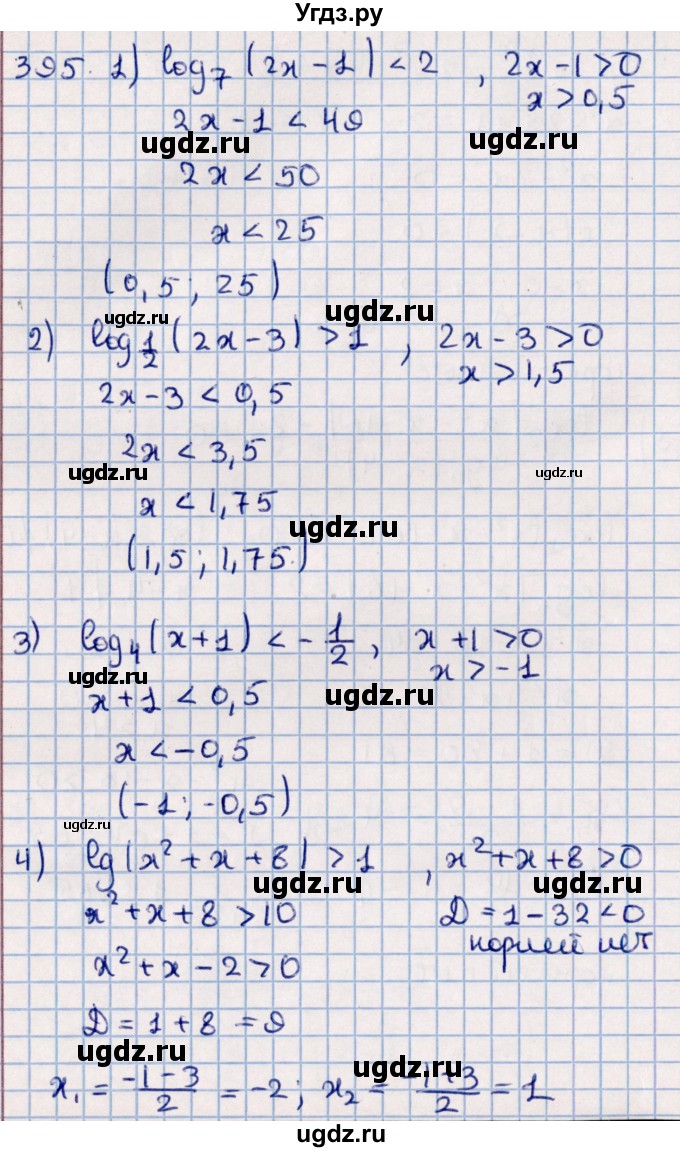 Угдз.ру
395. 1) log₇(2x-1) < 2 , 2x-1>0
x>0,5
2x-1 < 49
ugdz.ru ugdz.ru
2x < 50
x < 25
(0,5 ; 25)
ugdz.ru ugdz.ru
2) log 1/2 (2x-3) > 1 , 2x-3>0
x > 1,5
2x-3 < 0,5
2x < 3,5
ugdz.ru ugdz.ru
x < 1,75
ugdz.ru
(1,5 ; 1,75)
3) log₄(x+1) < -1/2 , x+1>0
x > -1
ugdz.ru ugdz.ru
x+1 < 0,5
x < -0,5
(-1 ; -0,5)
ugdz.ru
4) lg(x²+x+8) > 1 , x²+x+8>0
ugdz.ru ugdz.ru
x²+x+8 > 10 Д = 1-32<0
корней нет
x²+x-2>0
Д = 1+8 = 9
ugdz.ru ugdz.ru
x₁ = (-1-3)/2 = -2; x₂ = (-1+3)/2 = 1
ugdz.ru